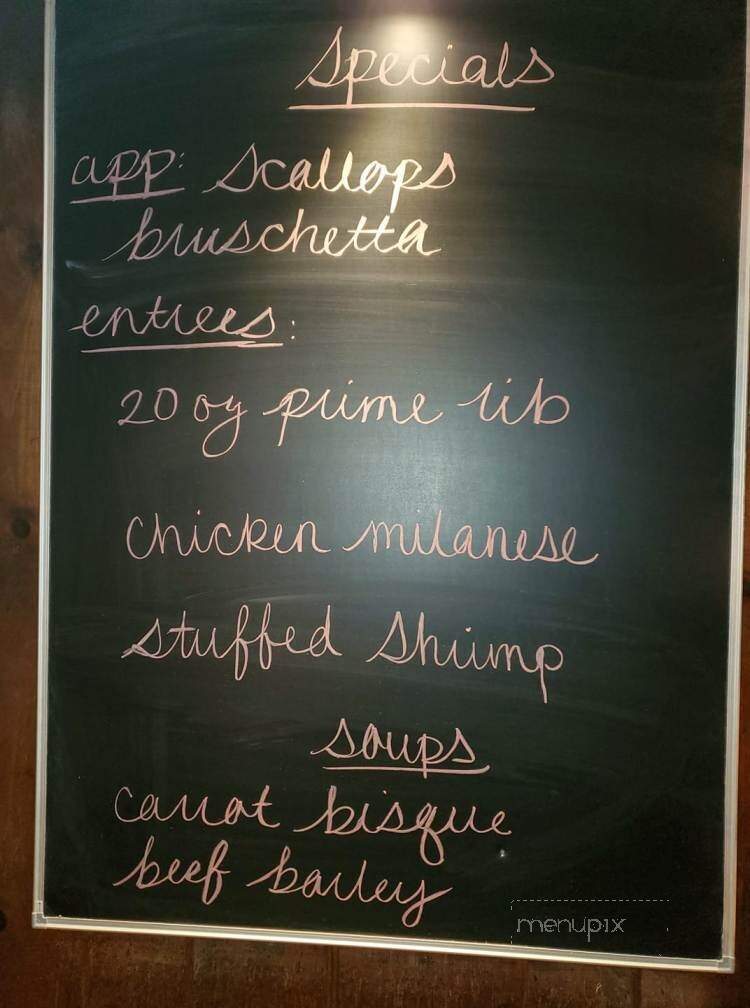 Specials
app: Scallops
bruschetta
entrees:
20 oz prime rib
chicken milanese
stuffed shrimp
soups
carrot bisque
beef barley
menupix